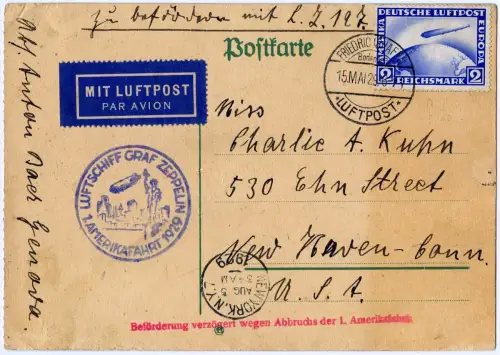 zu befördern mit L.Z. 127
Postkarte
DEUTSCHE LUFTPOST
AMERIKA
EUROPA
2 REICHSMARK 2
FRIEDRICHSHAFEN
Boden
15.MAI 29
* LUFTPOST *
MIT LUFTPOST
PAR AVION
LUFTSCHIFF GRAF ZEPPELIN
1. AMERIKAFAHRT 1929
Miss
Charlie A. Kuhn
530 Elm Street
New Haven-Conn.
U. S. A.
NEW YORK, N.Y.
AUG 5
AM
1929
Beförderung verzögert wegen Abbruchs der 1. Amerikafahrt
Abs. Anton Baer Genova.